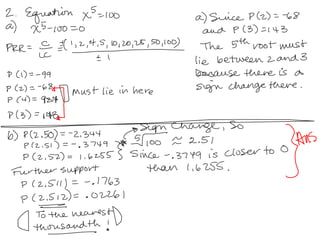 2. Equation x⁵=100
a) x⁵-100=0
PRR = C/LC = ±(1,2,4,5,10,20,25,50,100)/±1
P(1)=-99
P(2)=-68
P(4)=924
P(3)=143
Must lie in here
a) Since P(2)=-68
and P(3)=143
The 5th root must
lie between 2 and 3
Because there is a
sign change there.
b) P(2.50)=-2.344
P(2.51)=-.3749
P(2.52)=1.6255
Sign Change, So
⁵√100 ≈ 2.51
Since -.3749 is closer to 0
than 1.6255.
Ans
Further support
P(2.511)=-.1763
P(2.512)=.02261
To the nearest
thousandth!